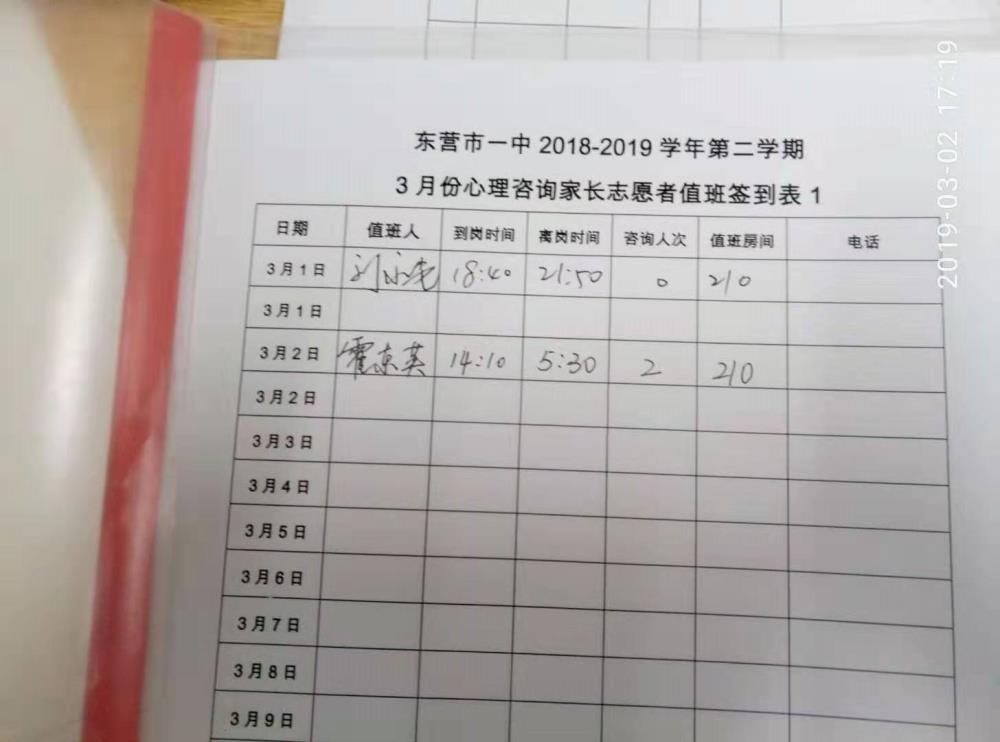 东营市一中 2018-2019 学年第二学期
3 月份心理咨询家长志愿者值班签到表 1
日期 值班人 到岗时间 离岗时间 咨询人次 值班房间 电话
3月1日 刘 18:40 21:50 0 210
3月1日
3月2日 霍京英 14:10 5:30 2 210
3月2日
3月3日
3月4日
3月5日
3月6日
3月7日
3月8日
3月9日
2019-03-02 17:19